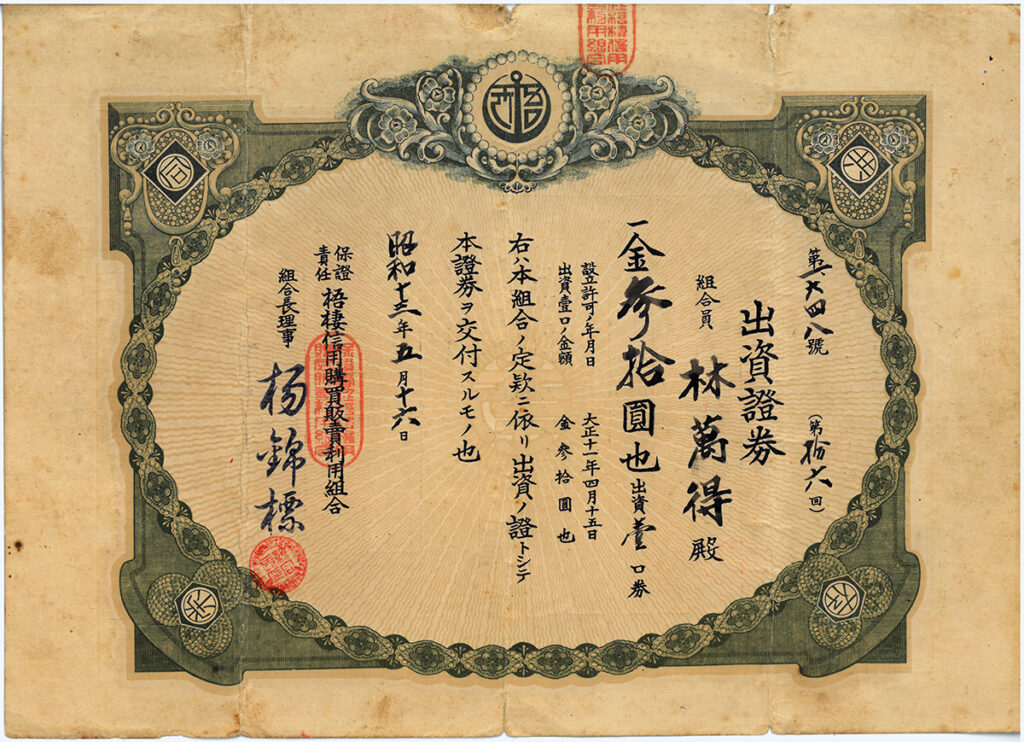 第一六四八號 (第拾六回)
出資證券
組合員 林萬得殿
一金參拾圓也 出資壹口券
設立許可ノ年月日 大正十一年四月十五日
出資壹口ノ金額 金參拾圓也
右ハ本組合ノ定款ニ依リ出資ノ證トシテ
本證券ヲ交付スルモノ也
昭和十三年五月十六日
保證責任 梧棲信用購買販賣利用組合
組合長理事 楊錦標